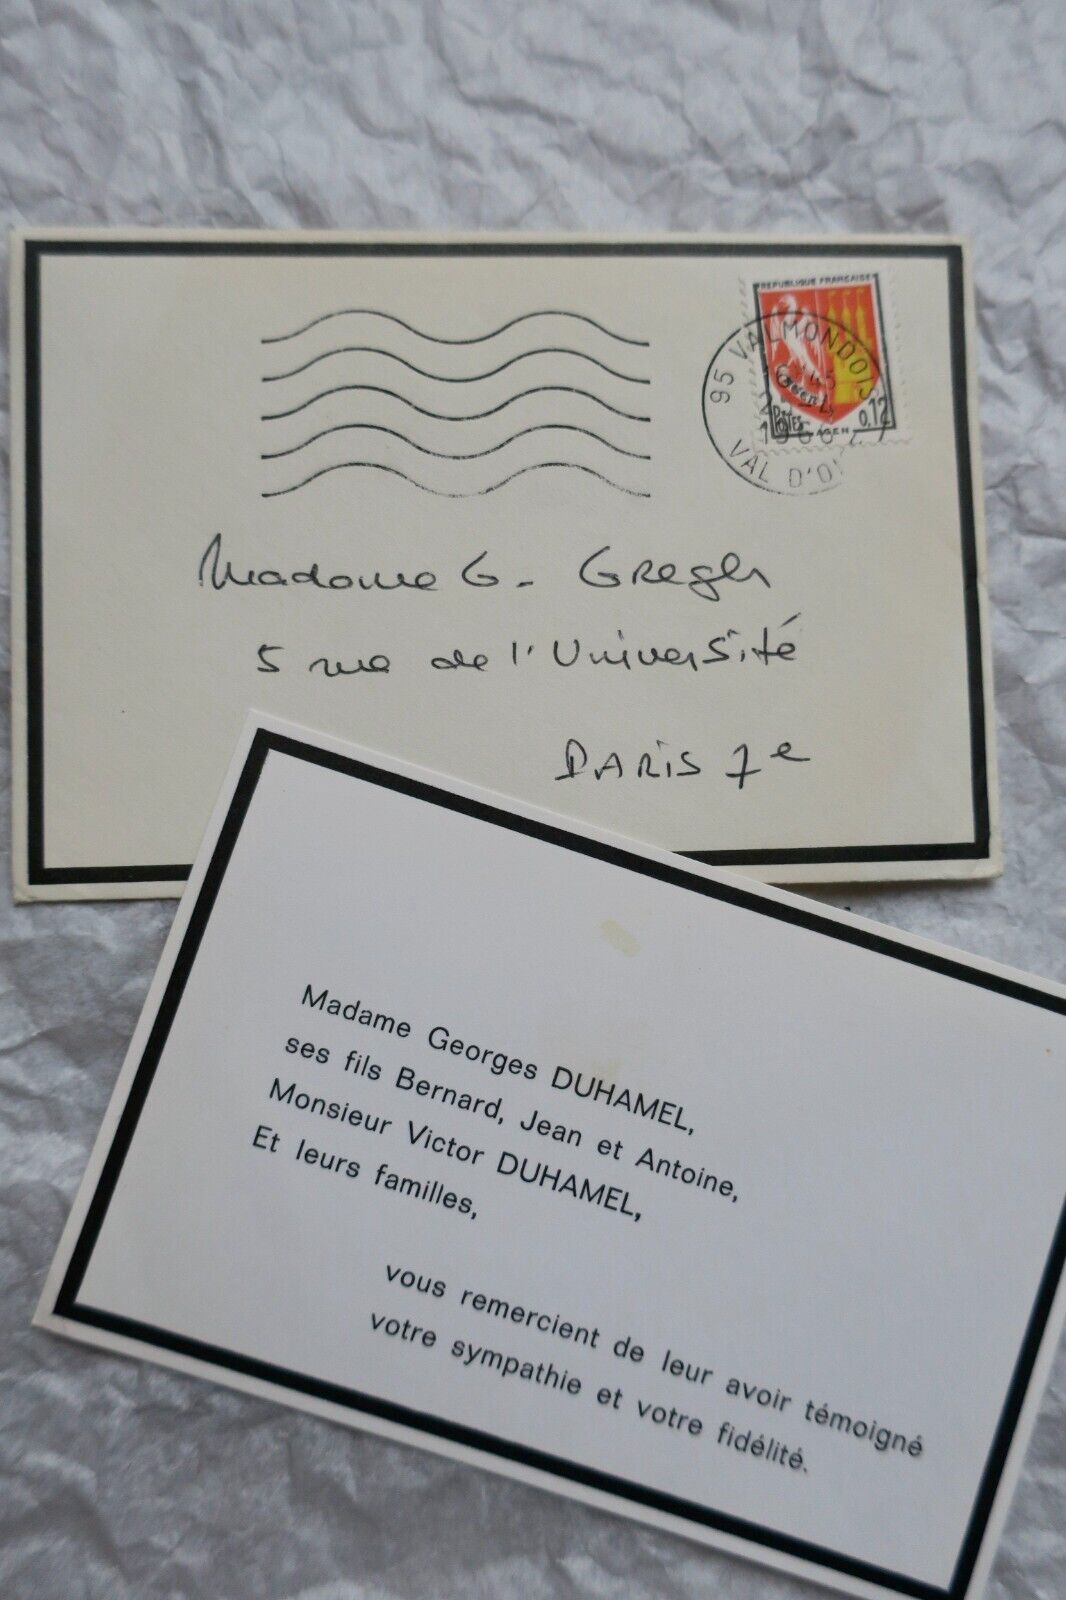 REPUBLIQUE FRANÇAISE
95 VALMONDOIS
1966
VAL D'OI
POSTES
0,12
AGEN
Madame G. Gregh
5 rue de l'Université
PARIS 7e
Madame Georges DUHAMEL,
ses fils Bernard, Jean et Antoine,
Monsieur Victor DUHAMEL,
Et leurs familles,
vous remercient de leur avoir témoigné
votre sympathie et votre fidélité.